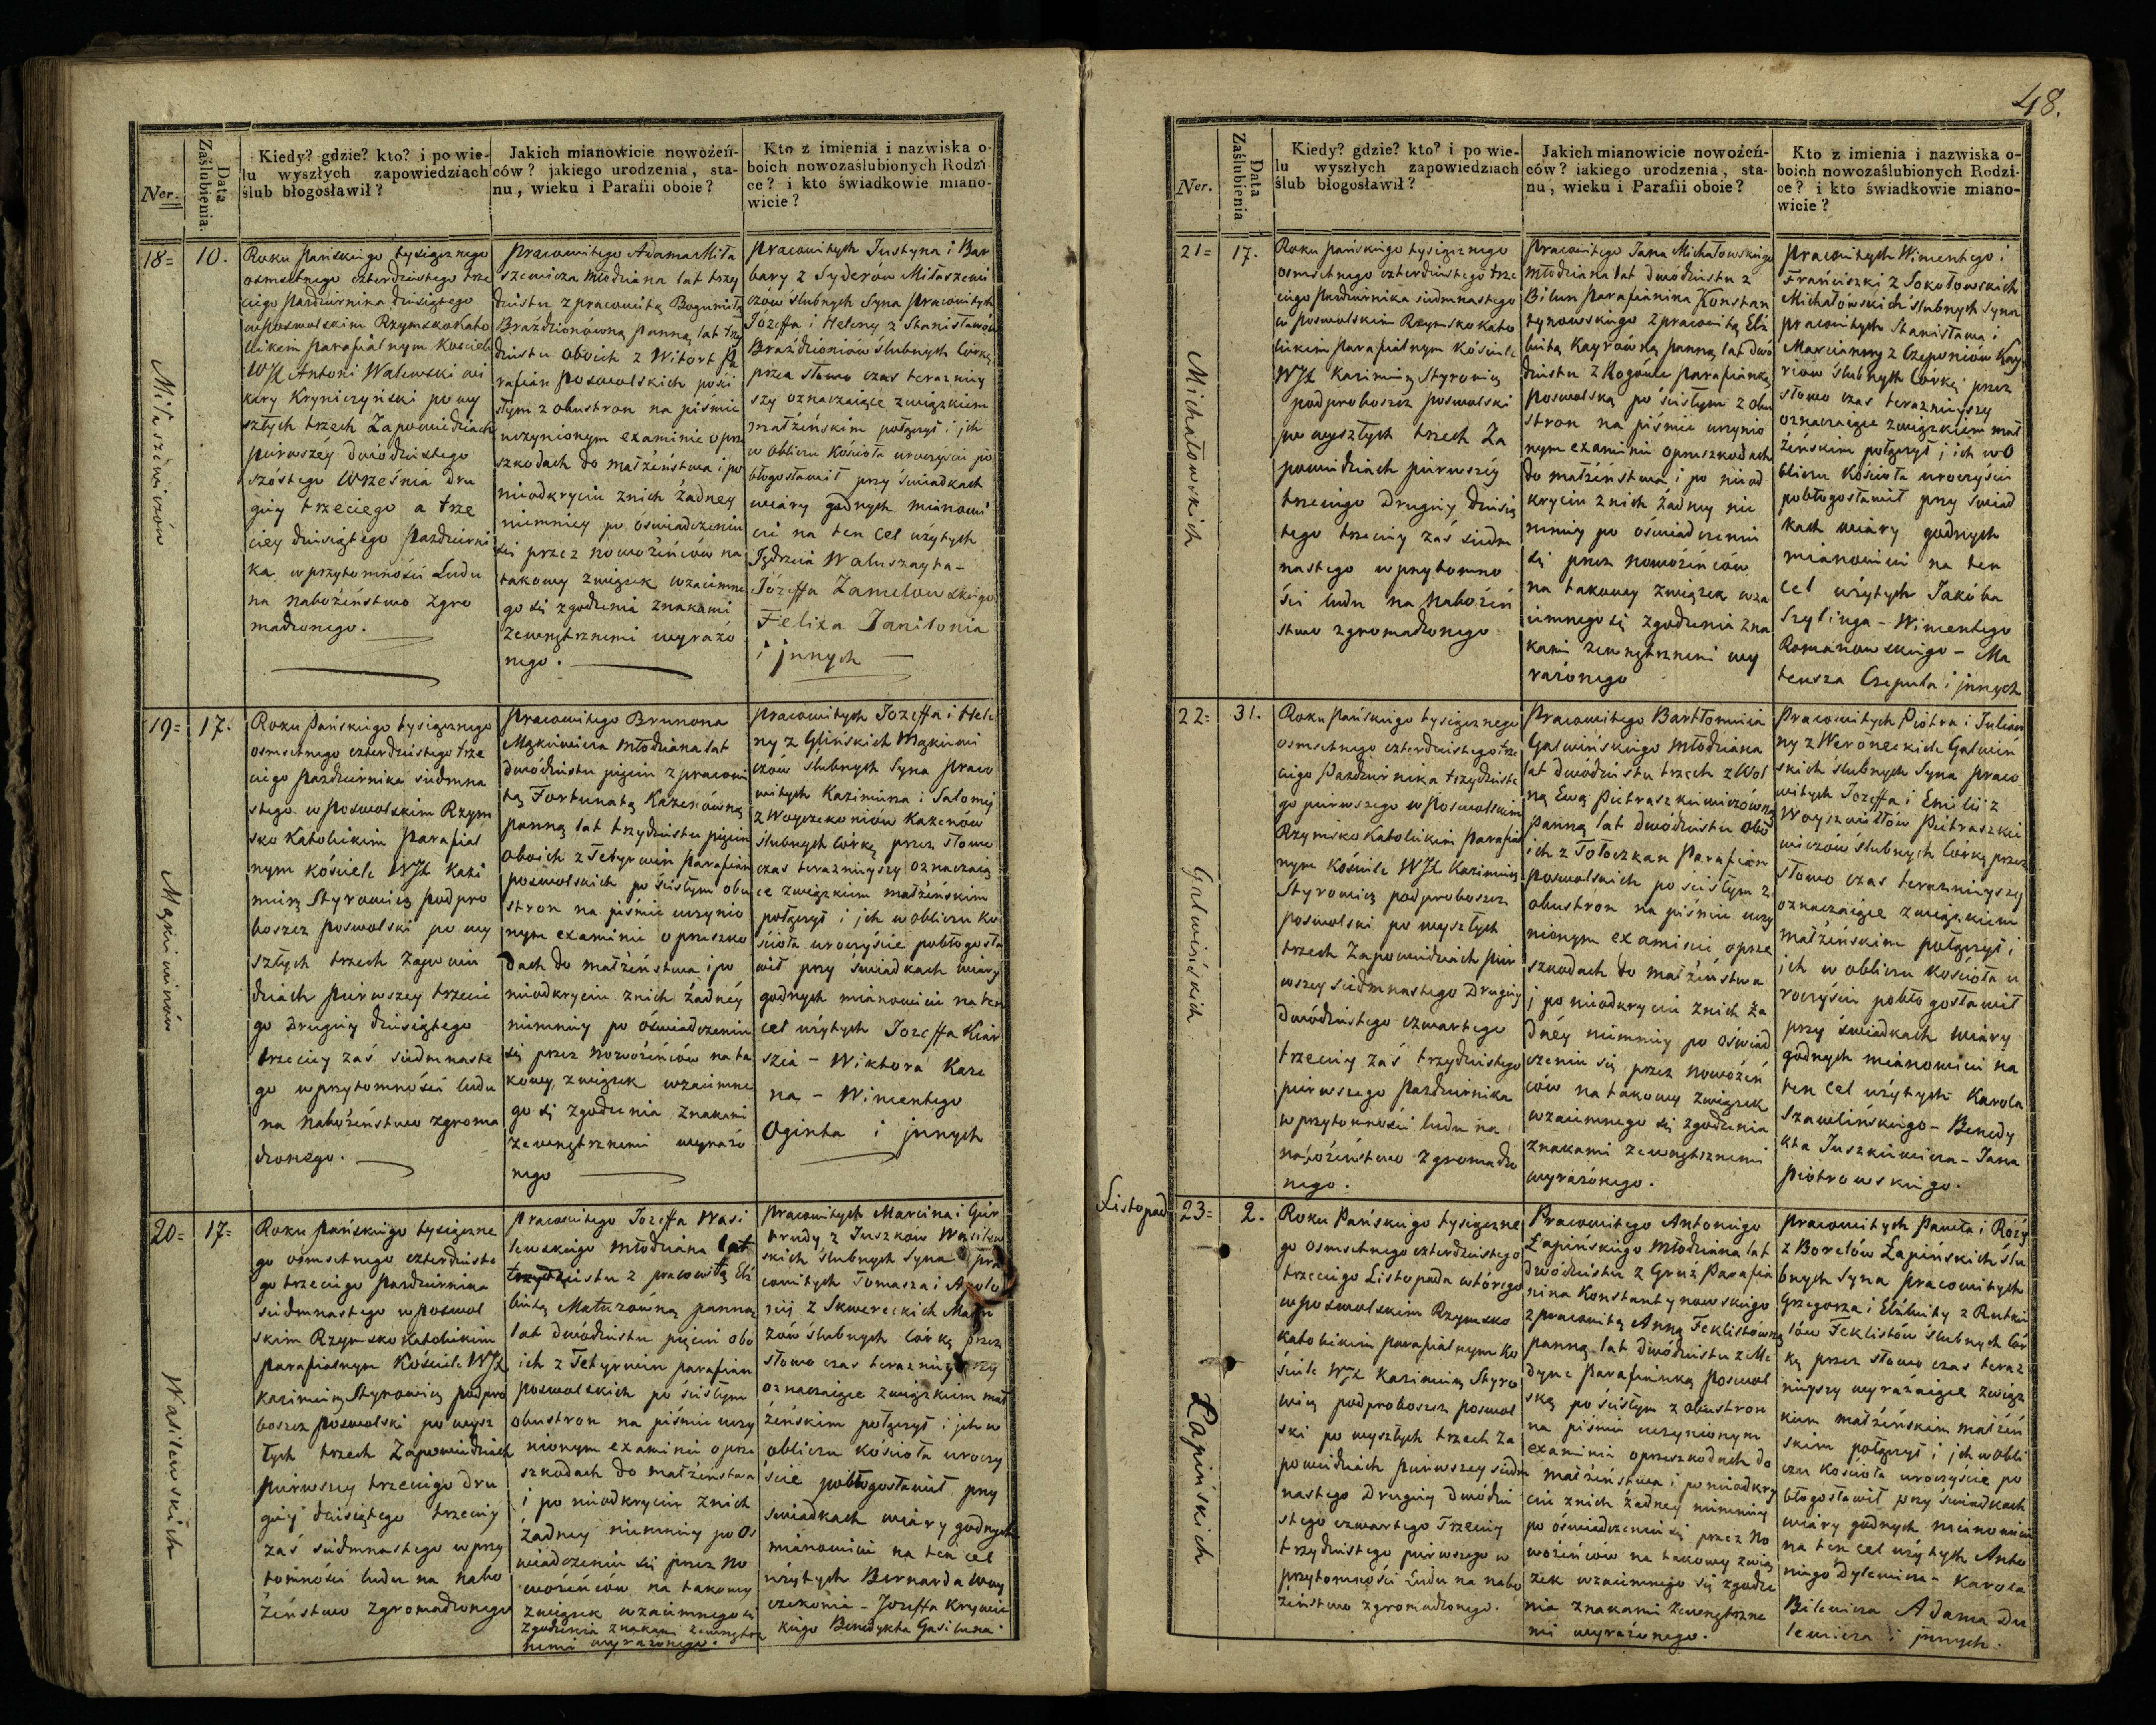 48.
Ner.
Data
Zaślubienia.
Kiedy? gdzie? kto? i po wie-
lu wyszłych zapowiedziach
ślub błogosławił?
Jakich mianowicie nowożeń-
ców? jakiego urodzenia, sta-
nu, wieku i Parafii oboie?
Kto z imienia i nazwiska o-
boich nowozaślubionych Rodzi-
ce? i kto świadkowie miano-
wicie?
18=
10.
Miłaszewiczów
Roku Pańskiego tysiącznego
osmsetnego czterdziestego trze
ciego Pazdziernina dziesiątego
w Poswolskim Rzymsko Kato
lickim Parafialnym Kosciele
WJX Antoni Walewski wi
kary Kryniczyński po wy
szłych trzech Zapowiedziach
pierwszéy dwódziestego
szóstego Września dru
giéy trzeciego a trze
ciey dziesiątego Pazdzierni
ka w przytomności Ludu
na Nabożeństwo zgro
madzonego.
Pracowitego Adama Miła
szewicza Młodziana lat trzy
dziestu z pracowitą Bogumiłą
Braździonówną panną lat trzy
dziestu oboich z Witort Pa
rafian Poswolskich po ści
słym z obustron na piśmie
uczynionym examinie o prze
szkodach do małżeństwa i po
nieodkryciu z nich żadney
niemniey po oświadczeniu
się przez Nowożeńców na
takowy związek wzaiemne
go się zgodzenia znakami
zewnętrznemi wyrażo
nego.
Pracowitych Justyna i Bar
bary z Syderów Miłaszewi
czów ślubnych Syna Pracowitych
Józeffa i Heleny z Stanisławów
Braździoniów ślubnych Córkę
przez słowo czas terazniey
szy oznaczaiące związkiem
małżeńskim połączył i ich
w obliczu Kościoła uroczyście po
błogosławił przy świadkach
wiary godnych mianowi
cie na ten cel użytych
Jędrzeia Waluszayta -
Józeffa Zamelowskiego
Felixa Janilonia
i jnnych
19=
17.
Mąkiewiczów
Roku Pańskiego tysiącznego
osmsetnego czterdziestego trze
ciego Pazdziernika siedmna
stego w Poswolskim Rzym
sko Katolickim Parafial
nym kościele WJX Kazi
mierz Styrowicz podpro
boszcz Poswolski po wy
szłych trzech zapowie
dziach pierwszey trzecie
go drugiey dziesiątego
trzeciey zaś siedmnaste
go w przytomności ludu
na Nabożeństwo zgroma
dzonego.
Pracowitego Brunona
Mąkiewicza Młodziana lat
dwódziestu pięciu z pracowi
tą Fortunatą Kazenówną
panną lat trzydziestu pięciu
oboich z Tetyrwin Parafian
poswolskich po ścisłym obu
stron na piśmie uczynio
nym examinie o przeszko
dach do małżeństwa i po
nieodkryciu z nich żadnéy
niemniey po oświadczeniu
się przez Nowożeńców na ta
kowy związek wzaiemne
go się zgodzenia znakami
zewnętrznemi wyrażo
nego
Pracowitych Jozeffa i Hele
ny z Glińskich Mąkiewi
czów ślubnych Syna Praco
witych Kazimierza i Salomej
z Woyczekoniów Kazenów
ślubnych Córkę przez słowo
czas teraznieyszy oznaczaią
ce związkiem małżeńskim
połączył i jch w obliczu Ko
ścioła uroczyście pobłogosła
wił przy świadkach wiary
godnych mianowicie na ten
cel użytych Jozeffa Kiar
szia - Wiktora Kaze
na - Wincentego
Oginta i jnnych
20=
17=
Wasilewskich
Roku Pańskiego tysiączne
go osmsetnego czterdzieste
go trzeciego Pazdziernika
siedmnastego w Poswol
skim Rzymsko Katolickim
parafialnym Kościele WJX
Kazimierz Styrowicz podpro
boszcz poswolski po wysz
łych trzech Zapowiedziach
pierwszey trzeciego dru
giéj dziesiątego trzeciey
zaś siedmnastego w przy
tomności ludu na nabo
żeństwo zgromadzonego
Pracowitego Jozeffa Wasi
lewskiego Młodziana lat
trzydziestu z pracowitą Elż
bietą Matuzówną panną
lat dwódziestu pięciu obo
ich z Tetyrwin parafian
poswolskich po ścisłym
obustron na piśmie uczy
nionym examinie o prze
szkodach do małżeństwa
i po nieodkryciu z nich
żadney niemniey po Os
wiadczeniu się przez No
wożeńców na takowy
związek wzaiemnego się
zgodzenia znakami zewnętrz
nemi wyrażonego.
Pracowitych Marcina i Gier
trudy z Juszków Wasilew
skich ślubnych Syna pra
cowitych Tomasza i Apolo
nij z Skwereckich Matu
zów ślubnych Córkę przez
słowo czas teraznieyszy
oznaczaiące związkiem mał
żeńskim połączył i jch w
obliczu kościoła uroczy
ście pobłogosławił przy
świadkach wiary godnych
mianowicie na ten cel
użytych Bernarda Woy
czekonia - Jozeffa Krzywic
kiego Benedykta Gasiuna.
Ner.
Data
Zaślubienia
Kiedy? gdzie? kto? i po wie-
lu wyszłych zapowiedziach
ślub błogosławił?
Jakich mianowicie nowożeń-
ców? iakiego urodzenia, sta-
nu, wieku i Parafii oboie?
Kto z imienia i nazwiska o-
boich nowozaślubionych Rodzi-
ce? i kto świadkowie miano-
wicie?
21=
17.
Michałowskich
Roku Pańskiego tysiącznego
osmsetnego czterdziestego trze
ciego Pazdziernika siedmnastego
w Poswolskim Rzymsko Kato
lickim Parafialnym Kościele
WJX Kazimierz Styrowicz
podproboszcz poswolski
po wyszłych trzech Za
powiedziach pierwszéy
trzeciego Drugiey dziesią
tego trzeciey zaś siedm
nastego w przytomno
ści ludu na Nabożeń
stwo zgromadzonego
Pracowitego Jana Michałowskiego
Młodziana lat dwódziestu z
Bilun Parafianina Konstan
tynowskiego z pracowitą Elż
bietą Kayrówną panną lat dwó
dziestu z Rogówa Parafianką
Poswolską po ścisłym z obu
stron na piśmie uczynio
nym examinie o przeszkodach
do małżeństwa i po nieod
kryciu z nich żadney nie
mniey po oświadczeniu
się przez Nowożeńców
na takowy związek wza
iemnego się zgodzenia zna
kami zewnętrznemi wy
rażonego
Pracowitych Wincentego i
Franciszki z Sokołowskich
Michałowskich ślubnych Syna
pracowitych Stanisława i
Marcianny z Czeponiów Kay
riów ślubnych Córkę przez
słowo czas teraznieyszy
oznaczaiące związkiem mał
żeńskim połączył i ich w o
bliczu Kościoła uroczyście
pobłogosławił przy świad
kach wiary godnych
mianowicie na ten
cel użytych Jakóba
Szylinga - Wincentego
Romanowskiego - Ma
teusza Czepula i jnnych
22=
31.
Galwińskich
Roku Pańskiego tysiącznego
osmsetnego czterdziestego trze
ciego Pazdziernika trzydzieste
go pierwszego w Poswolskim
Rzymsko Katolickim Parafial
nym Kościele WJX Kazimierz
Styrowicz podproboszcz
Poswolski po wyszłych
trzech Zapowiedziach pier
wszey siedmnastego Drugiey
dwódziestego czwartego
trzeciey zaś trzydziestego
pierwszego Pazdziernika
w przytomności ludu na
nabożeństwo zgromadzo
nego.
Pracowitego Bartłomieia
Galwińskiego Młodziana
lat dwódziestu trzech z Wol
ną Ewą Pietraszkiewiczówną
Panną lat dwódziestu obo
ich z Tołoczkan Parafian
poswolskich po ścisłym z
obustron na piśmie uczy
nionym examinie o prze
szkodach do małżeństwa
i po nieodkryciu z nich ża
dnéy niemniey po oświad
czeniu się przez Nowożeń
ców na takowy związek
wzaiemnego się zgodzenia
znakami zewnętrznemi
wyrażonego.
Pracowitych Piotra i Julian
ny z Weroneckich Galwiń
skich ślubnych Syna praco
witych Jozeffa i Emilii z
Woyszwiłłów Pietraszkie
wiczów ślubnych Córkę przez
słowo czas teraznieyszy
oznaczaiące związkiem
małżeńskim połączył i
jch w obliczu kościoła u
roczyście pobłogosławił
przy świadkach wiary
godnych mianowicie na
ten cel użytych Karola
Szawlińskiego - Benedy
kta Juszkiewicza - Jana
Piotrowskiego.
Listopad
23=
2.
Łapińskich
Roku Pańskiego tysiączne
go osmsetnego czterdziestego
trzeciego Listopada wtórego
w Poswolskim Rzymsko
Katolickim parafialnym Ko
ściele WJX Kazimierz Styro
wicz podproboszcz poswol
ski po wyszłych trzech Za
powiedziach pierwszey siedm
nastego Drugiey dwódzie
stego czwartego Trzeciey
trzydziestego pierwszego w
przytomności Ludu na nabo
żeństwo zgromadzonego.
Pracowitego Antoniego
Łapińskiego Młodziana lat
dwódziestu z Gruż Parafia
nina Konstantynowskiego
z pracowitą Anną Feklistówną
panną lat dwódziestu z Me
dyne Parafianką Poswol
ską po ścisłym z obustron
na piśmie uczynionym
examinie o przeszkodach do
małżeństwa i po nieodkry
ciu z nich żadney niemniey
po oświadczeniu się przez No
wożeńców na takowy zwią
zek wzaiemnego się zgodze
nia znakami zewnętrzne
mi wyrażonego.
Pracowitych Pawła i Róży
z Borelów Łapińskich ślu
bnych Syna pracowitych
Grzegorza i Elżbiety z Rutkie
lów Feklistów ślubnych Cór
kę przez słowo czas teraz
nieyszy wyrażaiące związ
kiem małżeńskim małżeń
skim połączył i jch w obli
czu Kościoła uroczyście po
błogosławił przy świadkach
wiary godnych mianowicie
na ten cel użytych Anto
niego Dylewicza - Karola
Bilewicza Adama Du
lewicza i jnnych.